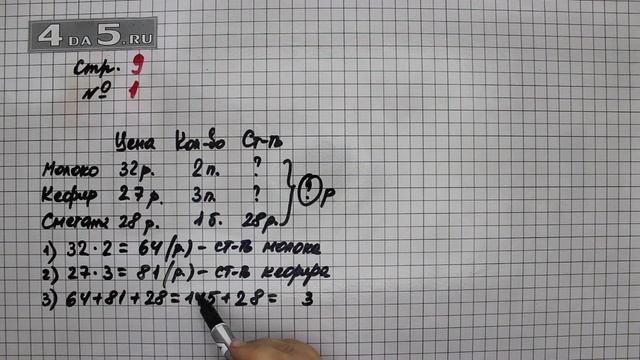 4 DA 5.RU
Стр. 9
№ 1
Цена Кол-во Ст-ть
Молоко 32 р. 2 п. ?
Кефир 27 р. 3 п. ? ? р
Сметана 28 р. 1 б. 28 р.
1) 32 · 2 = 64 (р.) - ст-ть молока
2) 27 · 3 = 81 (р.) - ст-ть кефира
3) 64 + 81 + 28 = 145 + 28 = 3